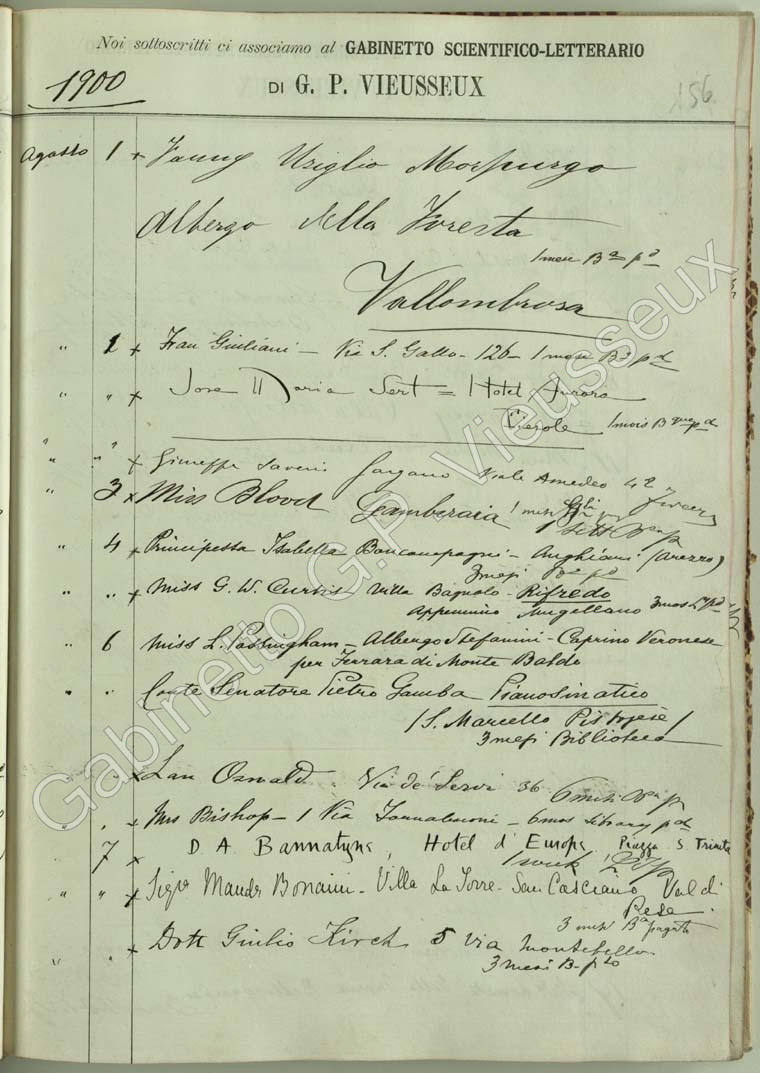 Noi sottoscritti ci associamo al GABINETTO SCIENTIFICO-LETTERARIO
DI G. P. VIEUSSEUX
1900
156
Agosto 1 x Fanny Usiglio Morpurgo
Albergo della Foresta
1 mese Bª pd
Vallombrosa
" 2 x Frau Giuliani – Via S. Gallo – 126 – 1 mese Bª pd
" " x Jose Maria Sert = Hotel Aurora
Fiesole 1 mois B pd
" " x Giuseppe Saverio Gargano Viale Amedeo 42
" 3 x Miss Blood Gamberaia 1 mese
" 4 x Principessa Isabella Boncompagni – Anghiari (Arezzo)
3 mesi pd
" " x Miss G. W. Curtis Villa Bagnolo – Rifredo
Appennino Mugellano 3 mos pd
" 6 x Miss L. Passingham – Albergo Stefanini – Caprino Veronese
per Ferrara di Monte Baldo
" " Conte Senatore Pietro Gamba Pianosinatico
(S. Marcello Pistojese)
3 mesi Biblioteca
" " x Oswald. Via de' Servi 36 6 mesi
" " x Mrs Bishop – 1 Via Tornabuoni – 6 mos library pd
7 x D. A. Bannatyne, Hotel d'Europa Piazza S Trinita
1 week
" " x Maude Bonaini – Villa La Torre – San Casciano Val di
Pesa.
3 mesi Bª pagato
" " x Dott Giulio Kirch 5 via Montebello
3 mesi B. pto
Gabinetto G.P. Vieusseux